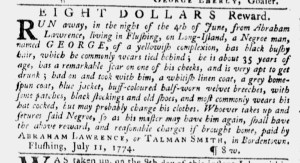 GEORGE EBERLY, Goaler.
EIGHT DOLLARS Reward.
RUN away, in the night of the 4th of June, from Abraham
Lawrence, living in Flushing, on Long-Island, a Negroe man,
named GEORGE, of a yellowish complexion, has black bushy
hair, which he commonly wears tied behind; he is about 35 years of
age, has a remarkable scar on one of his cheeks, and is very apt to get
drunk; had on and took with him, a whitish linen coat, a grey home-
spun coat, blue jacket, buff-coloured half-worn velvet breeches, with
two patches, light stockings and old shoes, and most commonly wears his
hat cocked, but may probably change his cloaths. Whoever takes up and
secures said Negroe, so as his master may have him again, shall have
the above reward, and reasonable charges if brought home, paid by
ABRAHAM LAWRENCE, or TALMAN SMITH, in Bordentown.
Flushing, July 11, 1774. ¶ 8 w.
WAS taken up, on the 8th day of this